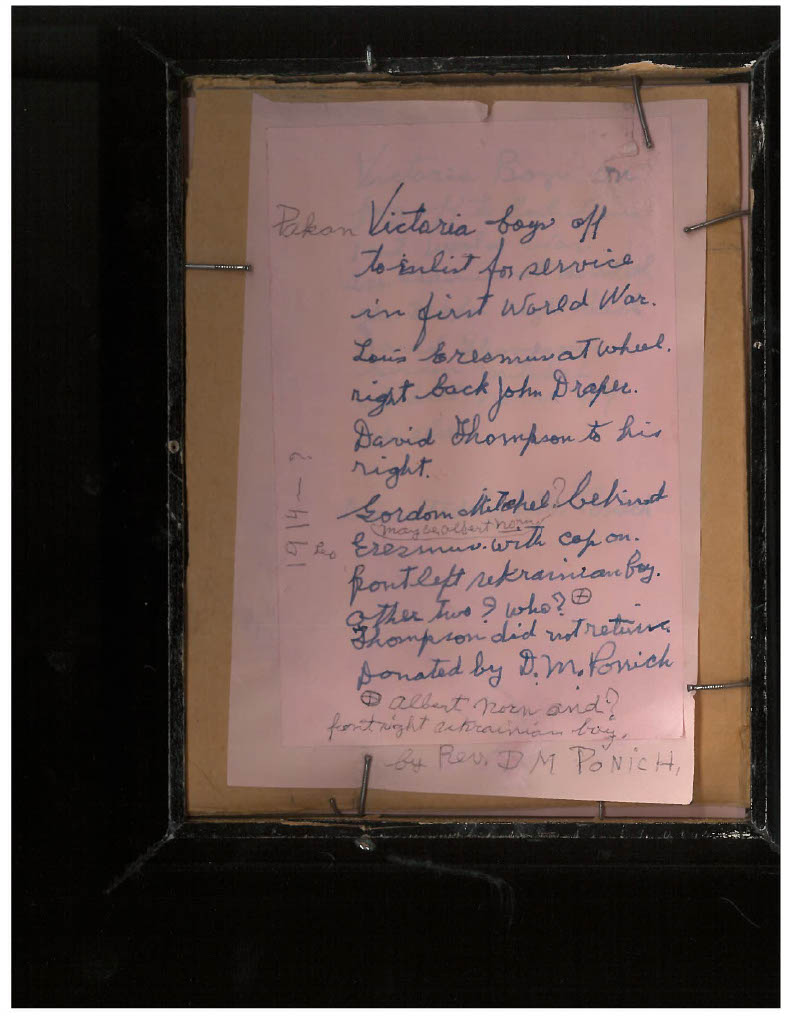 Pakan Victoria boys off
to enlist for service
in first World War.
Louis Erasmus at wheel.
right back John Draper.
David Thompson to his
right.
Gordon Mitchel? behind
maybe Albert Norn
Leo Erasmus. with cap on.
front left ukrainian boy.
other two? who? ⊕
Thompson did not return.
Donated by D. M. Ponich
⊕ albert norn and?
front right ukrainian boy.
by Rev. D M PONICH,
1914—?